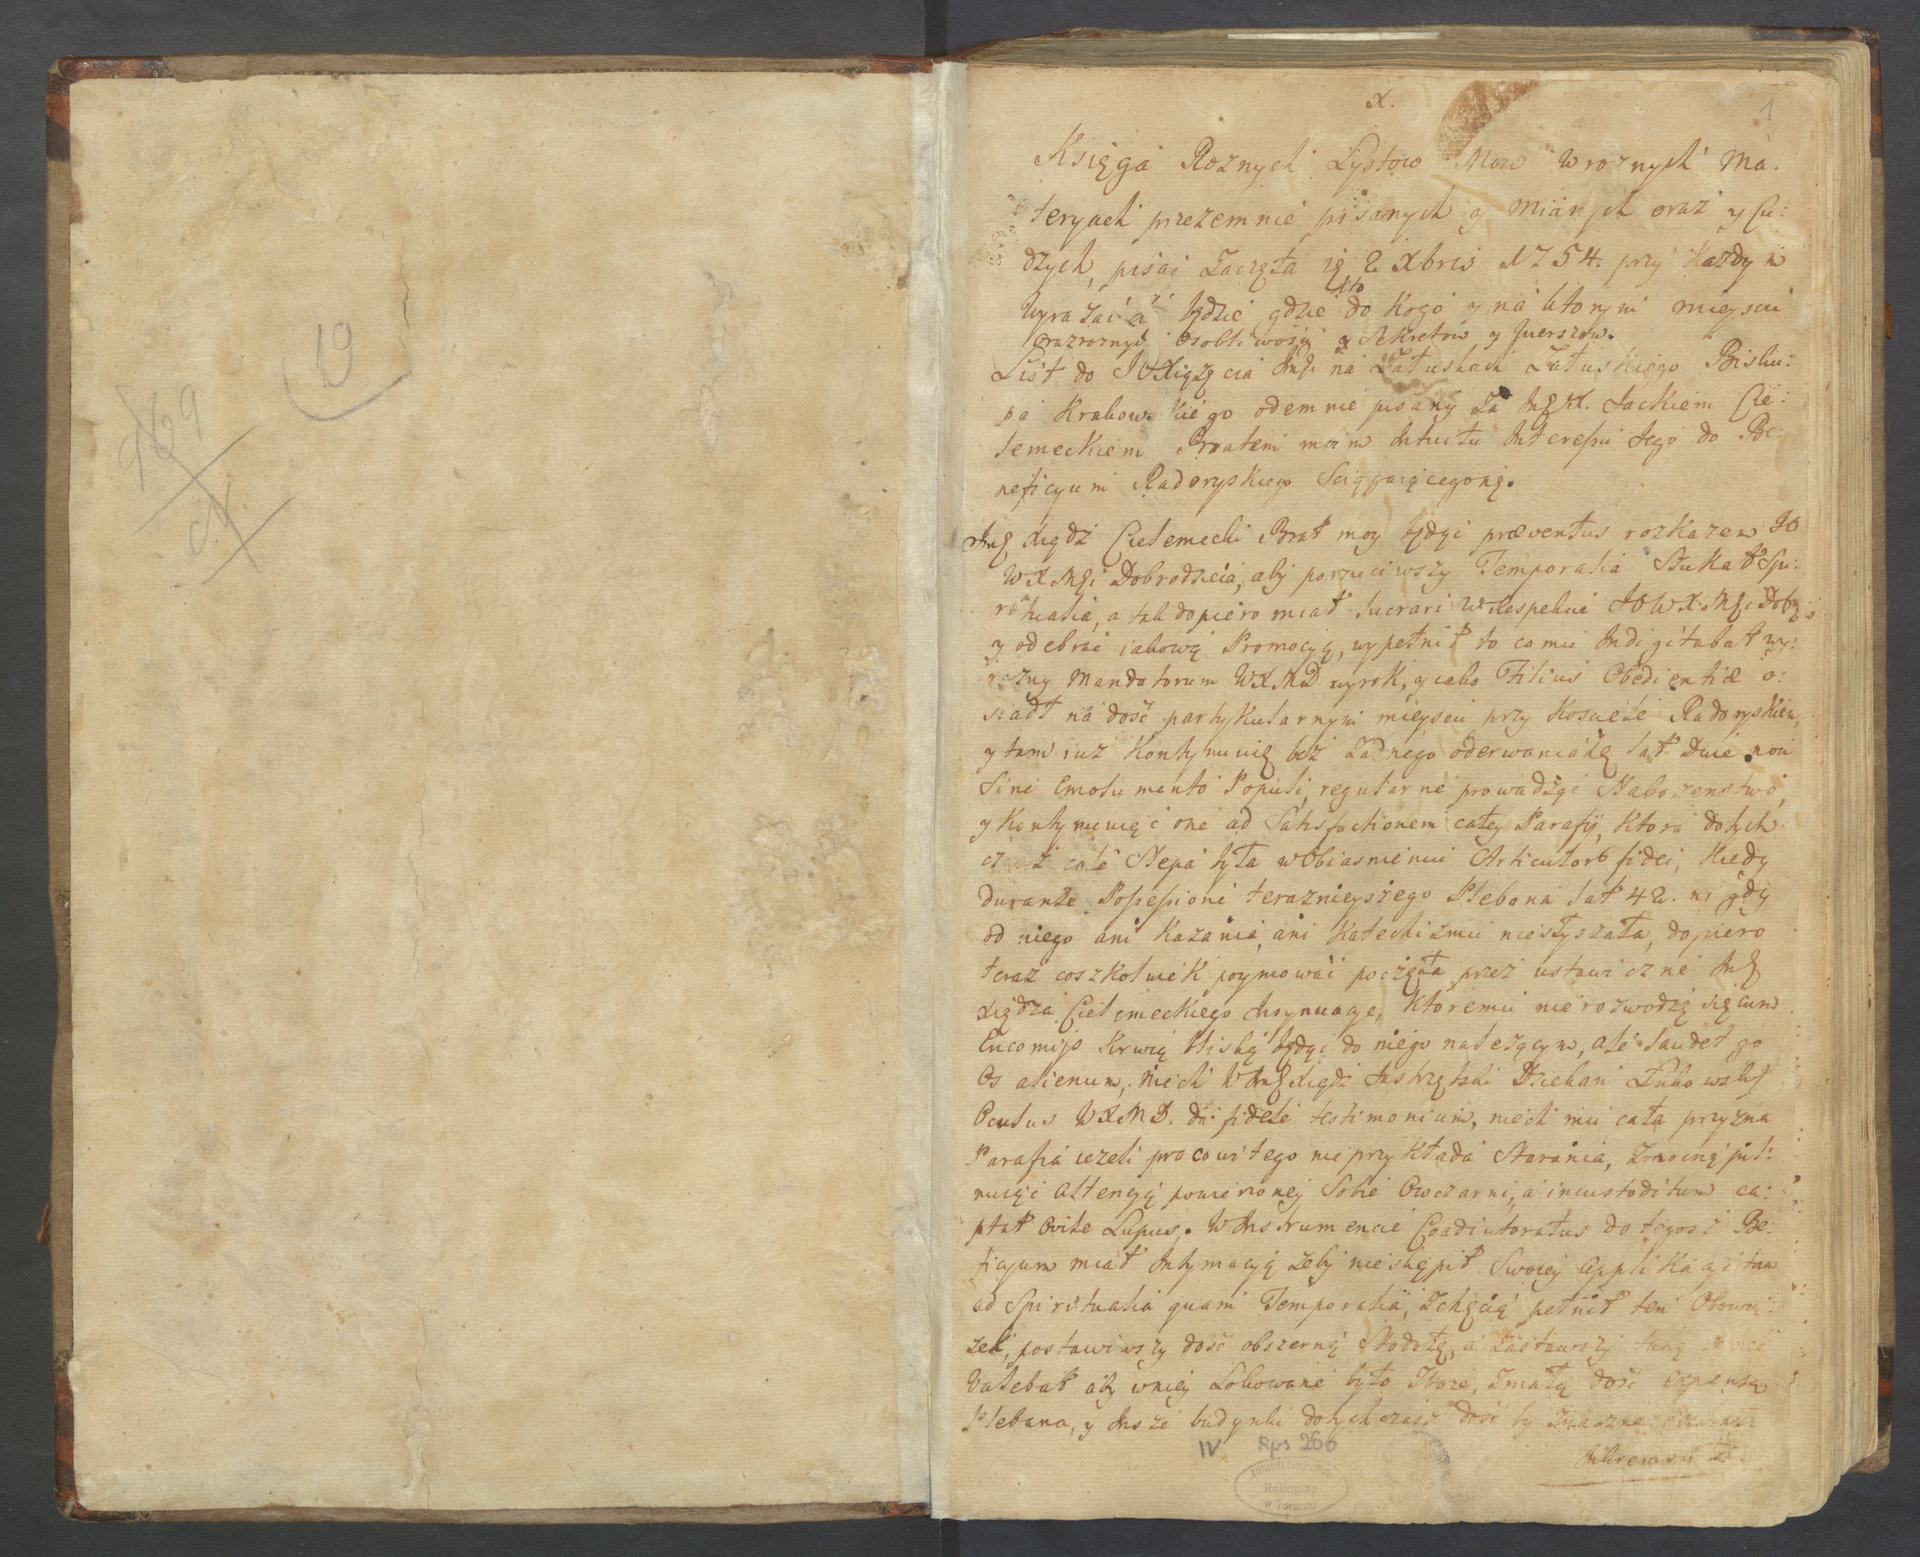 19
969
X.
1
Księga Roznych Lystow Mow w roznych Ma:
teryach przezemnie pisanych y mianych oraz y Cu:
dzych, pisac Zaczęta 2 Xbris 1754. przy Kazdym
wyrazaiąc będzie gdzie kto do Kogo y na ktorym mieyscu
oraz roznych osobliwości y Sekretow y Wierszow.
List do JOXiązęcia Jmści na Załuskach Załuskiego Bisku:
pa Krakowskiego odemnie pisany Za JmX. Jackiem Cie:
lemeckiem Bratem moim Intuitu Interessu Jego do Be:
neficyum Radoryskiego Sciągaiącegosię.
Xiądz Cielemecki Brat moy będąc præventus rozkazem JO
WXMci Dobrodzieia, aby porzuciwszy Temporalia Szukał Spi:
ritualia, a tak dopiero miał lucrari Względne JOWXMci Dobr:
y odebrac iakową Promocyą, wypełnił to co mu Indigitabat wy:
razny Mandatorum WXMD. wyrok, y iako Filius Obedientiæ o:
siadł na dość partykularnym mieyscu przy Kosciele Radoryskiem,
y tam iuz Kontynuuię bez Zadnego oderwania się lat Dwie non
Sine Emolumento Populi, regularne prowadząc Nabozenstwo,
y Kontynuuiąc one ad Satisfactionem całey Parafij, Ktora dotych
czas cale slepa była w Obiasnieniu Articulorum fidei, Kiedy
durante Possessione teraznieyszego Plebana lat 42. nigdy
od niego ani Kazania, ani Katechizmu nieslyszała, dopiero
teraz coszkolwiek poymować poczęła przez ustawiczne Jm
Xiędza Cielemeckiego Insynuacye, Ktoremu nierozwodzę się cum
Encomijs Krwią bliską będąc do niego nalezącym, ale laudet go
Os alienum, niech WJm Xiądz Jastrzębski Dziekan Łukowski
Oculus WXMD. da fidele testimonium, niech mu cała przyzna
Parafia iezeli pracowitego nieprzykłada Starania, Zmocną pil:
nuiąc Attencyą powierzoney Sobie Owczarni, a incustoditum ca:
ptat Ovile Lupus. W Instrumencie Coadiutoratus do tegosz Be:
ficyum miał Intymacyą zeby nieskąpił Swoiey Applikacyi tam
ad Spiritualia quam Temporalia, Zchęcią pełnił ten Obowią:
zek, postawiwszy dość obszerną Stodołę, a zastawszy
Valebat aby wniey Lokowane było Zboze, Zmałą dość expensą
Plebana, y Insze budynki dotychczas dość by Znaczne
IV Rps 266
Rękopisy
w Toruniu